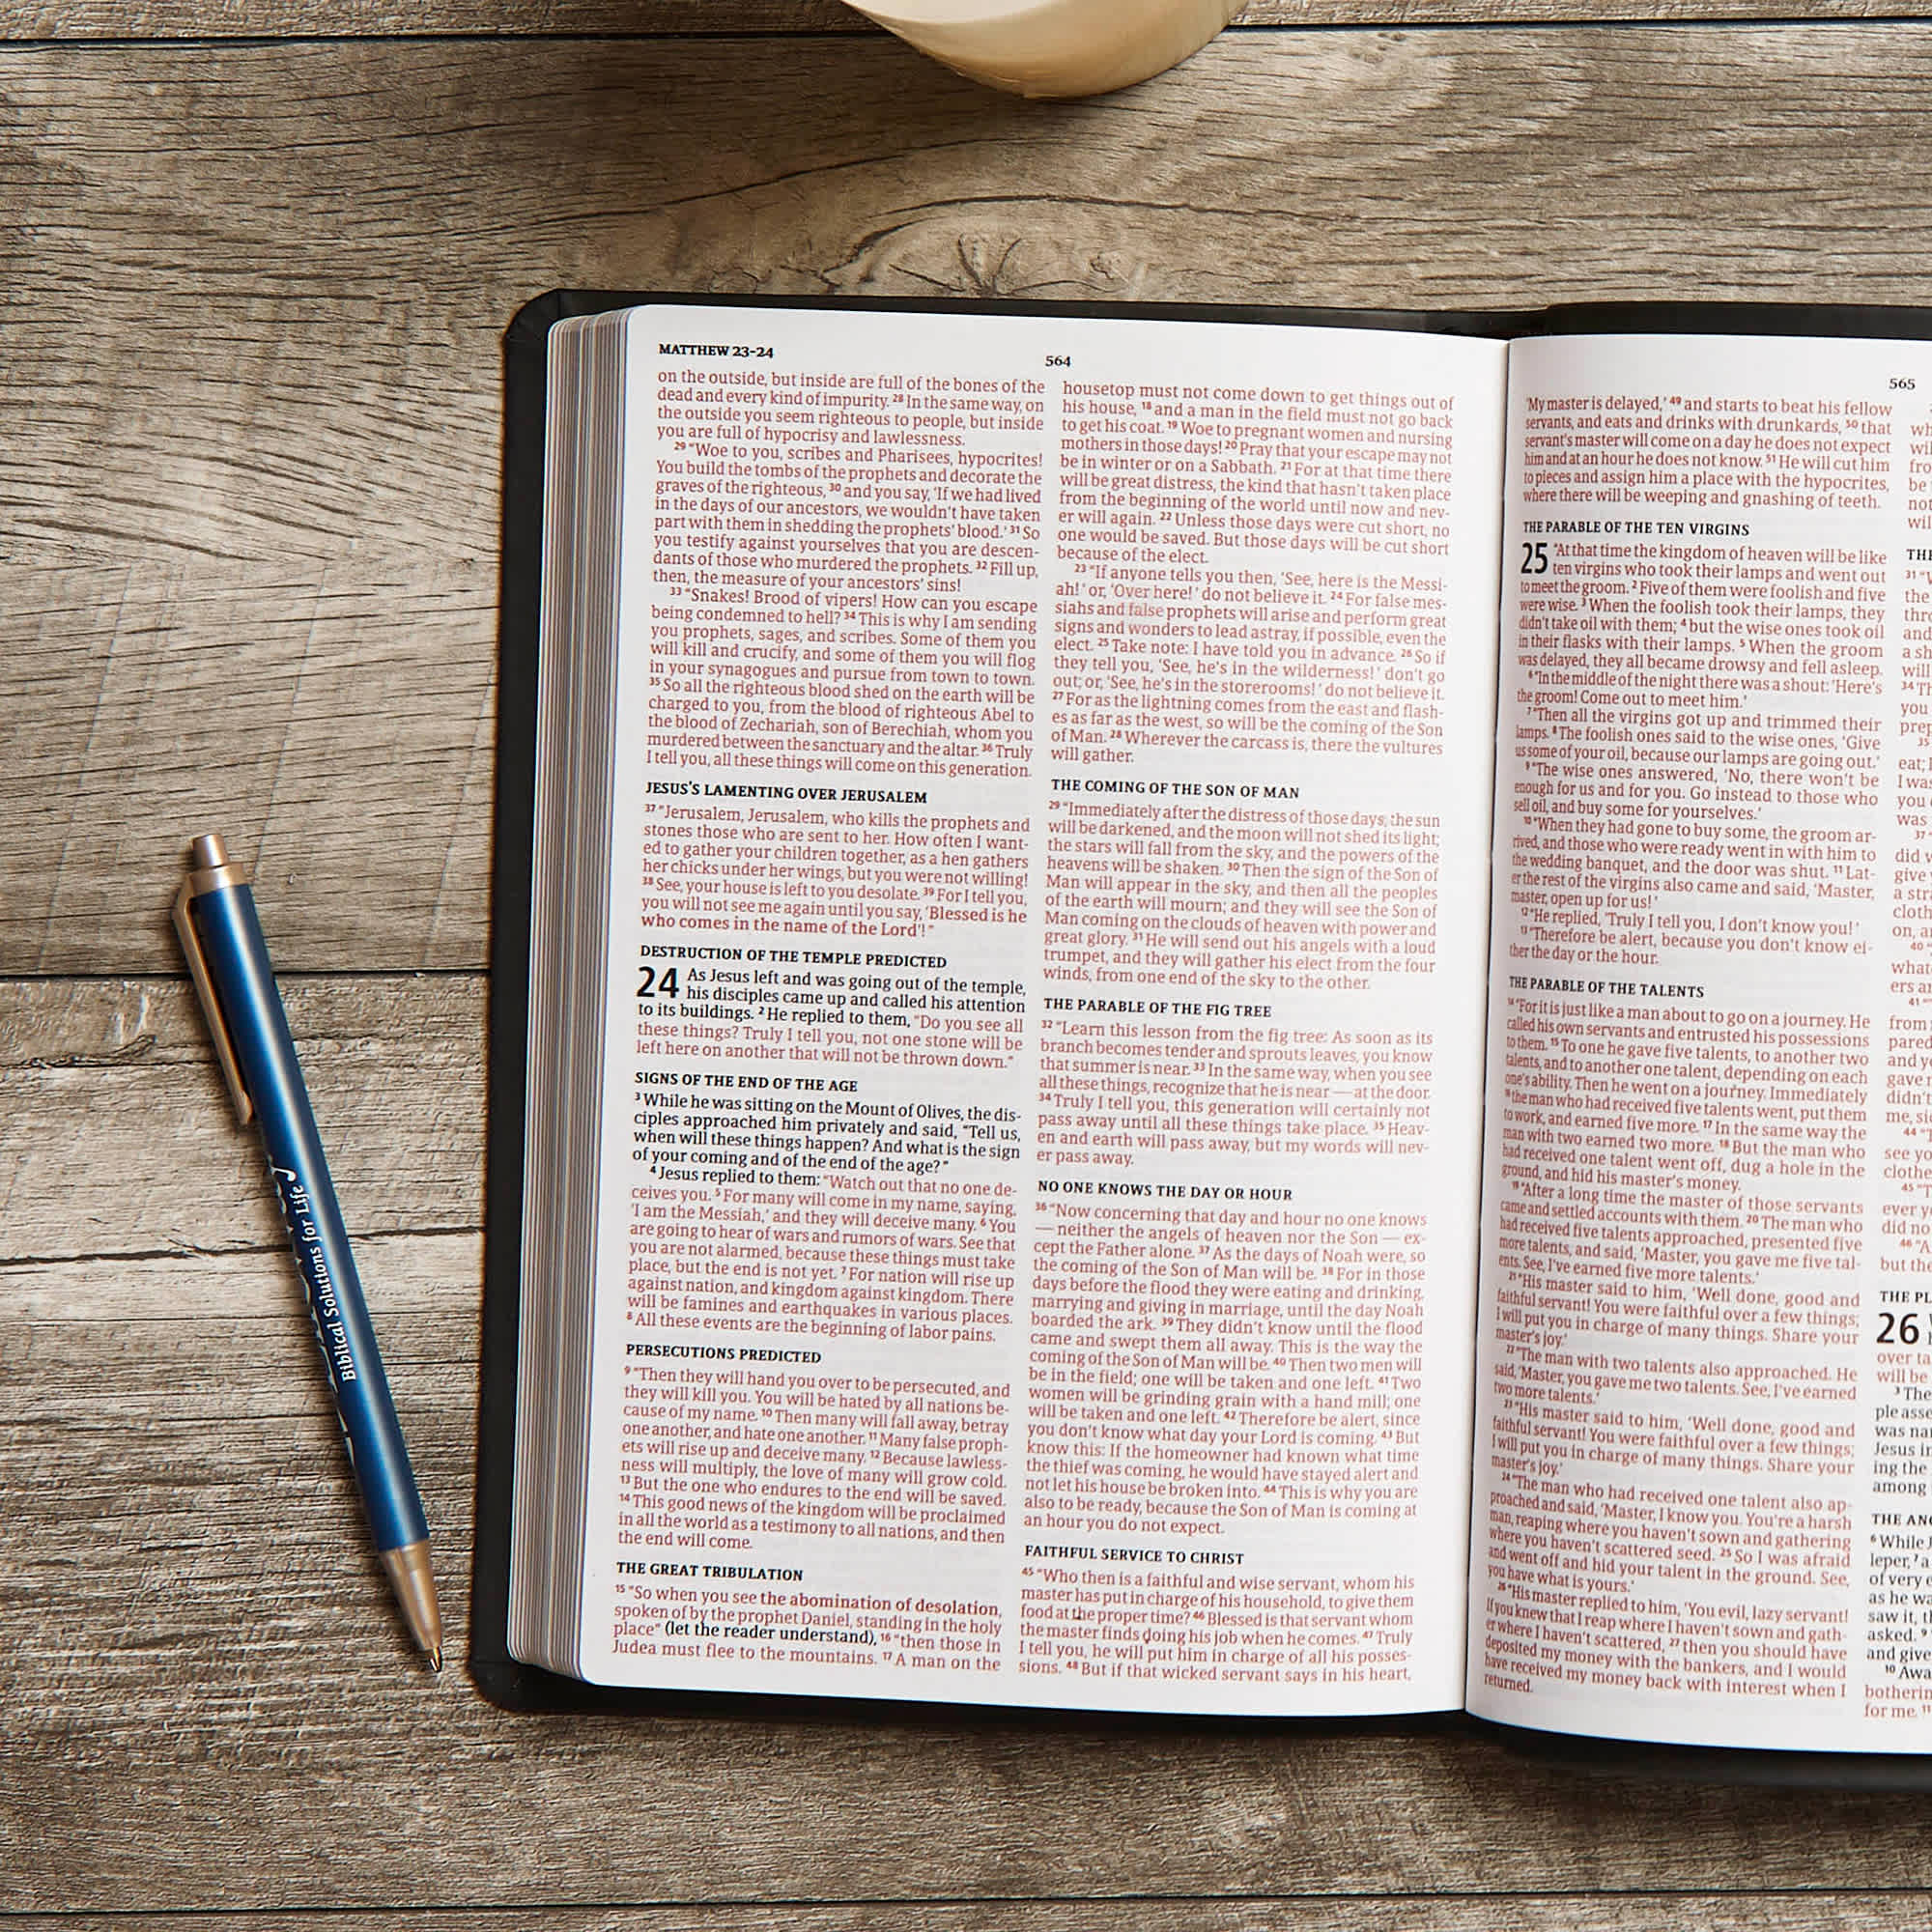 MATTHEW 23-24
564
on the outside, but inside are full of the bones of the
dead and every kind of impurity. 28 In the same way, on
the outside you seem righteous to people, but inside
you are full of hypocrisy and lawlessness.
29 “Woe to you, scribes and Pharisees, hypocrites!
You build the tombs of the prophets and decorate the
graves of the righteous, 30 and you say, ‘If we had lived
in the days of our ancestors, we wouldn’t have taken
part with them in shedding the prophets’ blood.’ 31 So
you testify against yourselves that you are descen-
dants of those who murdered the prophets. 32 Fill up,
then, the measure of your ancestors’ sins!
33 “Snakes! Brood of vipers! How can you escape
being condemned to hell? 34 This is why I am sending
you prophets, sages, and scribes. Some of them you
will kill and crucify, and some of them you will flog
in your synagogues and pursue from town to town.
35 So all the righteous blood shed on the earth will be
charged to you, from the blood of righteous Abel to
the blood of Zechariah, son of Berechiah, whom you
murdered between the sanctuary and the altar. 36 Truly
I tell you, all these things will come on this generation.
JESUS’S LAMENTING OVER JERUSALEM
37 “Jerusalem, Jerusalem, who kills the prophets and
stones those who are sent to her. How often I want-
ed to gather your children together, as a hen gathers
her chicks under her wings, but you were not willing!
38 See, your house is left to you desolate. 39 For I tell you,
you will not see me again until you say, ‘Blessed is he
who comes in the name of the Lord’!”
DESTRUCTION OF THE TEMPLE PREDICTED
24 As Jesus left and was going out of the temple,
his disciples came up and called his attention
to its buildings. 2 He replied to them, “Do you see all
these things? Truly I tell you, not one stone will be
left here on another that will not be thrown down.”
SIGNS OF THE END OF THE AGE
3 While he was sitting on the Mount of Olives, the dis-
ciples approached him privately and said, “Tell us,
when will these things happen? And what is the sign
of your coming and of the end of the age?”
4 Jesus replied to them: “Watch out that no one de-
ceives you. 5 For many will come in my name, saying,
‘I am the Messiah,’ and they will deceive many. 6 You
are going to hear of wars and rumors of wars. See that
you are not alarmed, because these things must take
place, but the end is not yet. 7 For nation will rise up
against nation, and kingdom against kingdom. There
will be famines and earthquakes in various places.
8 All these events are the beginning of labor pains.
PERSECUTIONS PREDICTED
9 “Then they will hand you over to be persecuted, and
they will kill you. You will be hated by all nations be-
cause of my name. 10 Then many will fall away, betray
one another, and hate one another. 11 Many false proph-
ets will rise up and deceive many. 12 Because lawless-
ness will multiply, the love of many will grow cold.
13 But the one who endures to the end will be saved.
14 This good news of the kingdom will be proclaimed
in all the world as a testimony to all nations, and then
the end will come.
THE GREAT TRIBULATION
15 “So when you see the abomination of desolation,
spoken of by the prophet Daniel, standing in the holy
place” (let the reader understand), 16 “then those in
Judea must flee to the mountains. 17 A man on the
housetop must not come down to get things out of
his house, 18 and a man in the field must not go back
to get his coat. 19 Woe to pregnant women and nursing
mothers in those days! 20 Pray that your escape may not
be in winter or on a Sabbath. 21 For at that time there
will be great distress, the kind that hasn’t taken place
from the beginning of the world until now and nev-
er will again. 22 Unless those days were cut short, no
one would be saved. But those days will be cut short
because of the elect.
23 “If anyone tells you then, ‘See, here is the Messi-
ah!’ or, ‘Over here!’ do not believe it. 24 For false mes-
siahs and false prophets will arise and perform great
signs and wonders to lead astray, if possible, even the
elect. 25 Take note: I have told you in advance. 26 So if
they tell you, ‘See, he’s in the wilderness!’ don’t go
out; or, ‘See, he’s in the storerooms!’ do not believe it.
27 For as the lightning comes from the east and flash-
es as far as the west, so will be the coming of the Son
of Man. 28 Wherever the carcass is, there the vultures
will gather.
THE COMING OF THE SON OF MAN
29 “Immediately after the distress of those days, the sun
will be darkened, and the moon will not shed its light;
the stars will fall from the sky, and the powers of the
heavens will be shaken. 30 Then the sign of the Son of
Man will appear in the sky, and then all the peoples
of the earth will mourn; and they will see the Son of
Man coming on the clouds of heaven with power and
great glory. 31 He will send out his angels with a loud
trumpet, and they will gather his elect from the four
winds, from one end of the sky to the other.
THE PARABLE OF THE FIG TREE
32 “Learn this lesson from the fig tree: As soon as its
branch becomes tender and sprouts leaves, you know
that summer is near. 33 In the same way, when you see
all these things, recognize that he is near — at the door.
34 Truly I tell you, this generation will certainly not
pass away until all these things take place. 35 Heav-
en and earth will pass away, but my words will nev-
er pass away.
NO ONE KNOWS THE DAY OR HOUR
36 “Now concerning that day and hour no one knows
— neither the angels of heaven nor the Son — ex-
cept the Father alone. 37 As the days of Noah were, so
the coming of the Son of Man will be. 38 For in those
days before the flood they were eating and drinking,
marrying and giving in marriage, until the day Noah
boarded the ark. 39 They didn’t know until the flood
came and swept them all away. This is the way the
coming of the Son of Man will be. 40 Then two men will
be in the field; one will be taken and one left. 41 Two
women will be grinding grain with a hand mill; one
will be taken and one left. 42 Therefore be alert, since
you don’t know what day your Lord is coming. 43 But
know this: If the homeowner had known what time
the thief was coming, he would have stayed alert and
not let his house be broken into. 44 This is why you are
also to be ready, because the Son of Man is coming at
an hour you do not expect.
FAITHFUL SERVICE TO CHRIST
45 “Who then is a faithful and wise servant, whom his
master has put in charge of his household, to give them
food at the proper time? 46 Blessed is that servant whom
the master finds doing his job when he comes. 47 Truly
I tell you, he will put him in charge of all his posses-
sions. 48 But if that wicked servant says in his heart,
565
‘My master is delayed,’ 49 and starts to beat his fellow
servants, and eats and drinks with drunkards, 50 that
servant’s master will come on a day he does not expect
him and at an hour he does not know. 51 He will cut him
to pieces and assign him a place with the hypocrites,
where there will be weeping and gnashing of teeth.
THE PARABLE OF THE TEN VIRGINS
25 “At that time the kingdom of heaven will be like
ten virgins who took their lamps and went out
to meet the groom. 2 Five of them were foolish and five
were wise. 3 When the foolish took their lamps, they
didn’t take oil with them; 4 but the wise ones took oil
in their flasks with their lamps. 5 When the groom
was delayed, they all became drowsy and fell asleep.
6 “In the middle of the night there was a shout: ‘Here’s
the groom! Come out to meet him.’
7 “Then all the virgins got up and trimmed their
lamps. 8 The foolish ones said to the wise ones, ‘Give
us some of your oil, because our lamps are going out.’
9 “The wise ones answered, ‘No, there won’t be
enough for us and for you. Go instead to those who
sell oil, and buy some for yourselves.’
10 “When they had gone to buy some, the groom ar-
rived, and those who were ready went in with him to
the wedding banquet, and the door was shut. 11 Lat-
er the rest of the virgins also came and said, ‘Master,
master, open up for us!’
12 “He replied, ‘Truly I tell you, I don’t know you!’
13 “Therefore be alert, because you don’t know ei-
ther the day or the hour.
THE PARABLE OF THE TALENTS
14 “For it is just like a man about to go on a journey. He
called his own servants and entrusted his possessions
to them. 15 To one he gave five talents, to another two
talents, and to another one talent, depending on each
one’s ability. Then he went on a journey. Immediately
16 the man who had received five talents went, put them
to work, and earned five more. 17 In the same way the
man with two earned two more. 18 But the man who
had received one talent went off, dug a hole in the
ground, and hid his master’s money.
19 “After a long time the master of those servants
came and settled accounts with them. 20 The man who
had received five talents approached, presented five
more talents, and said, ‘Master, you gave me five tal-
ents. See, I’ve earned five more talents.’
21 “His master said to him, ‘Well done, good and
faithful servant! You were faithful over a few things;
I will put you in charge of many things. Share your
master’s joy.’
22 “The man with two talents also approached. He
said, ‘Master, you gave me two talents. See, I’ve earned
two more talents.’
23 “His master said to him, ‘Well done, good and
faithful servant! You were faithful over a few things;
I will put you in charge of many things. Share your
master’s joy.’
24 “The man who had received one talent also ap-
proached and said, ‘Master, I know you. You’re a harsh
man, reaping where you haven’t sown and gathering
where you haven’t scattered seed. 25 So I was afraid
and went off and hid your talent in the ground. See,
you have what is yours.’
26 “His master replied to him, ‘You evil, lazy servant!
If you knew that I reap where I haven’t sown and gath-
er where I haven’t scattered, 27 then you should have
deposited my money with the bankers, and I would
have received my money back with interest when I
returned.
be
THE
31
the
and
a sh
will
34
you
prep
35
eat;
I was
you
was
37
did
give
a str
cloth
on, a
40
what
ers a
41
from
pared
and y
gave
didn’t
me, si
44
see yo
clothe
45
ever y
did no
46 “A
but the
THE PL
26
over ta
will be
3 The
ple asse
was na
Jesus in
ing the
among
THE AN
6 While J
leper, 7 a
of very e
as he wa
saw it, t
asked. 9
and give
10 Awa
botherin
for me. 11
Biblical Solutions for Life